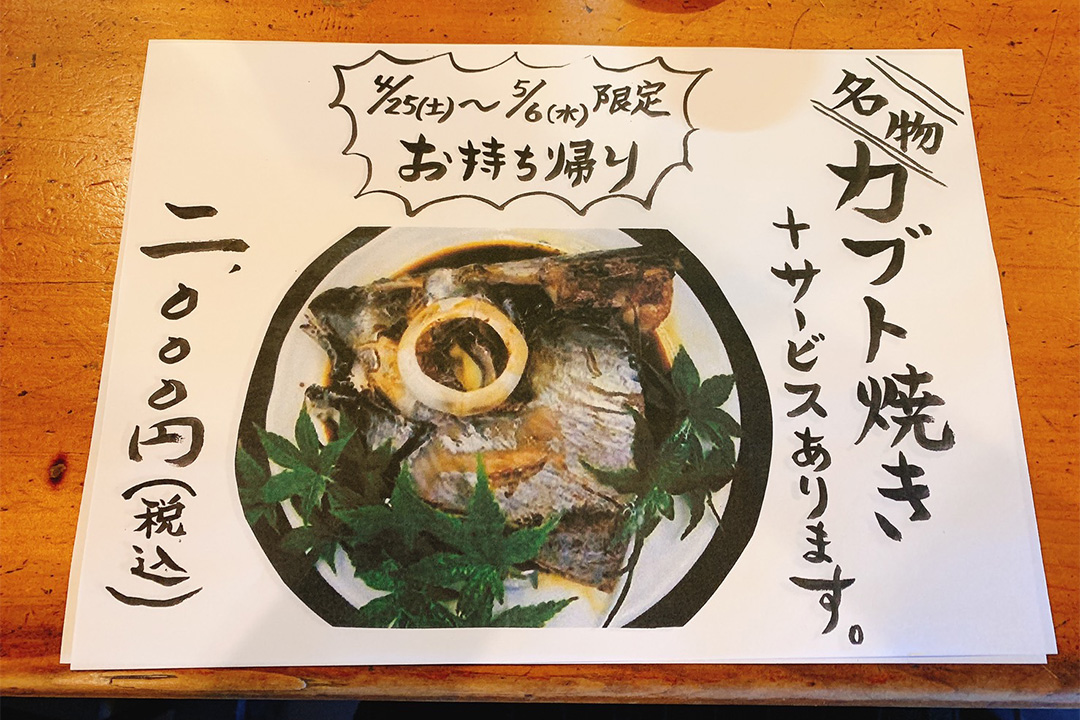 4/25(土)〜5/6(水)限定
お持ち帰り
名物
カブト焼き
+サービスあります。
二,000円(税込)